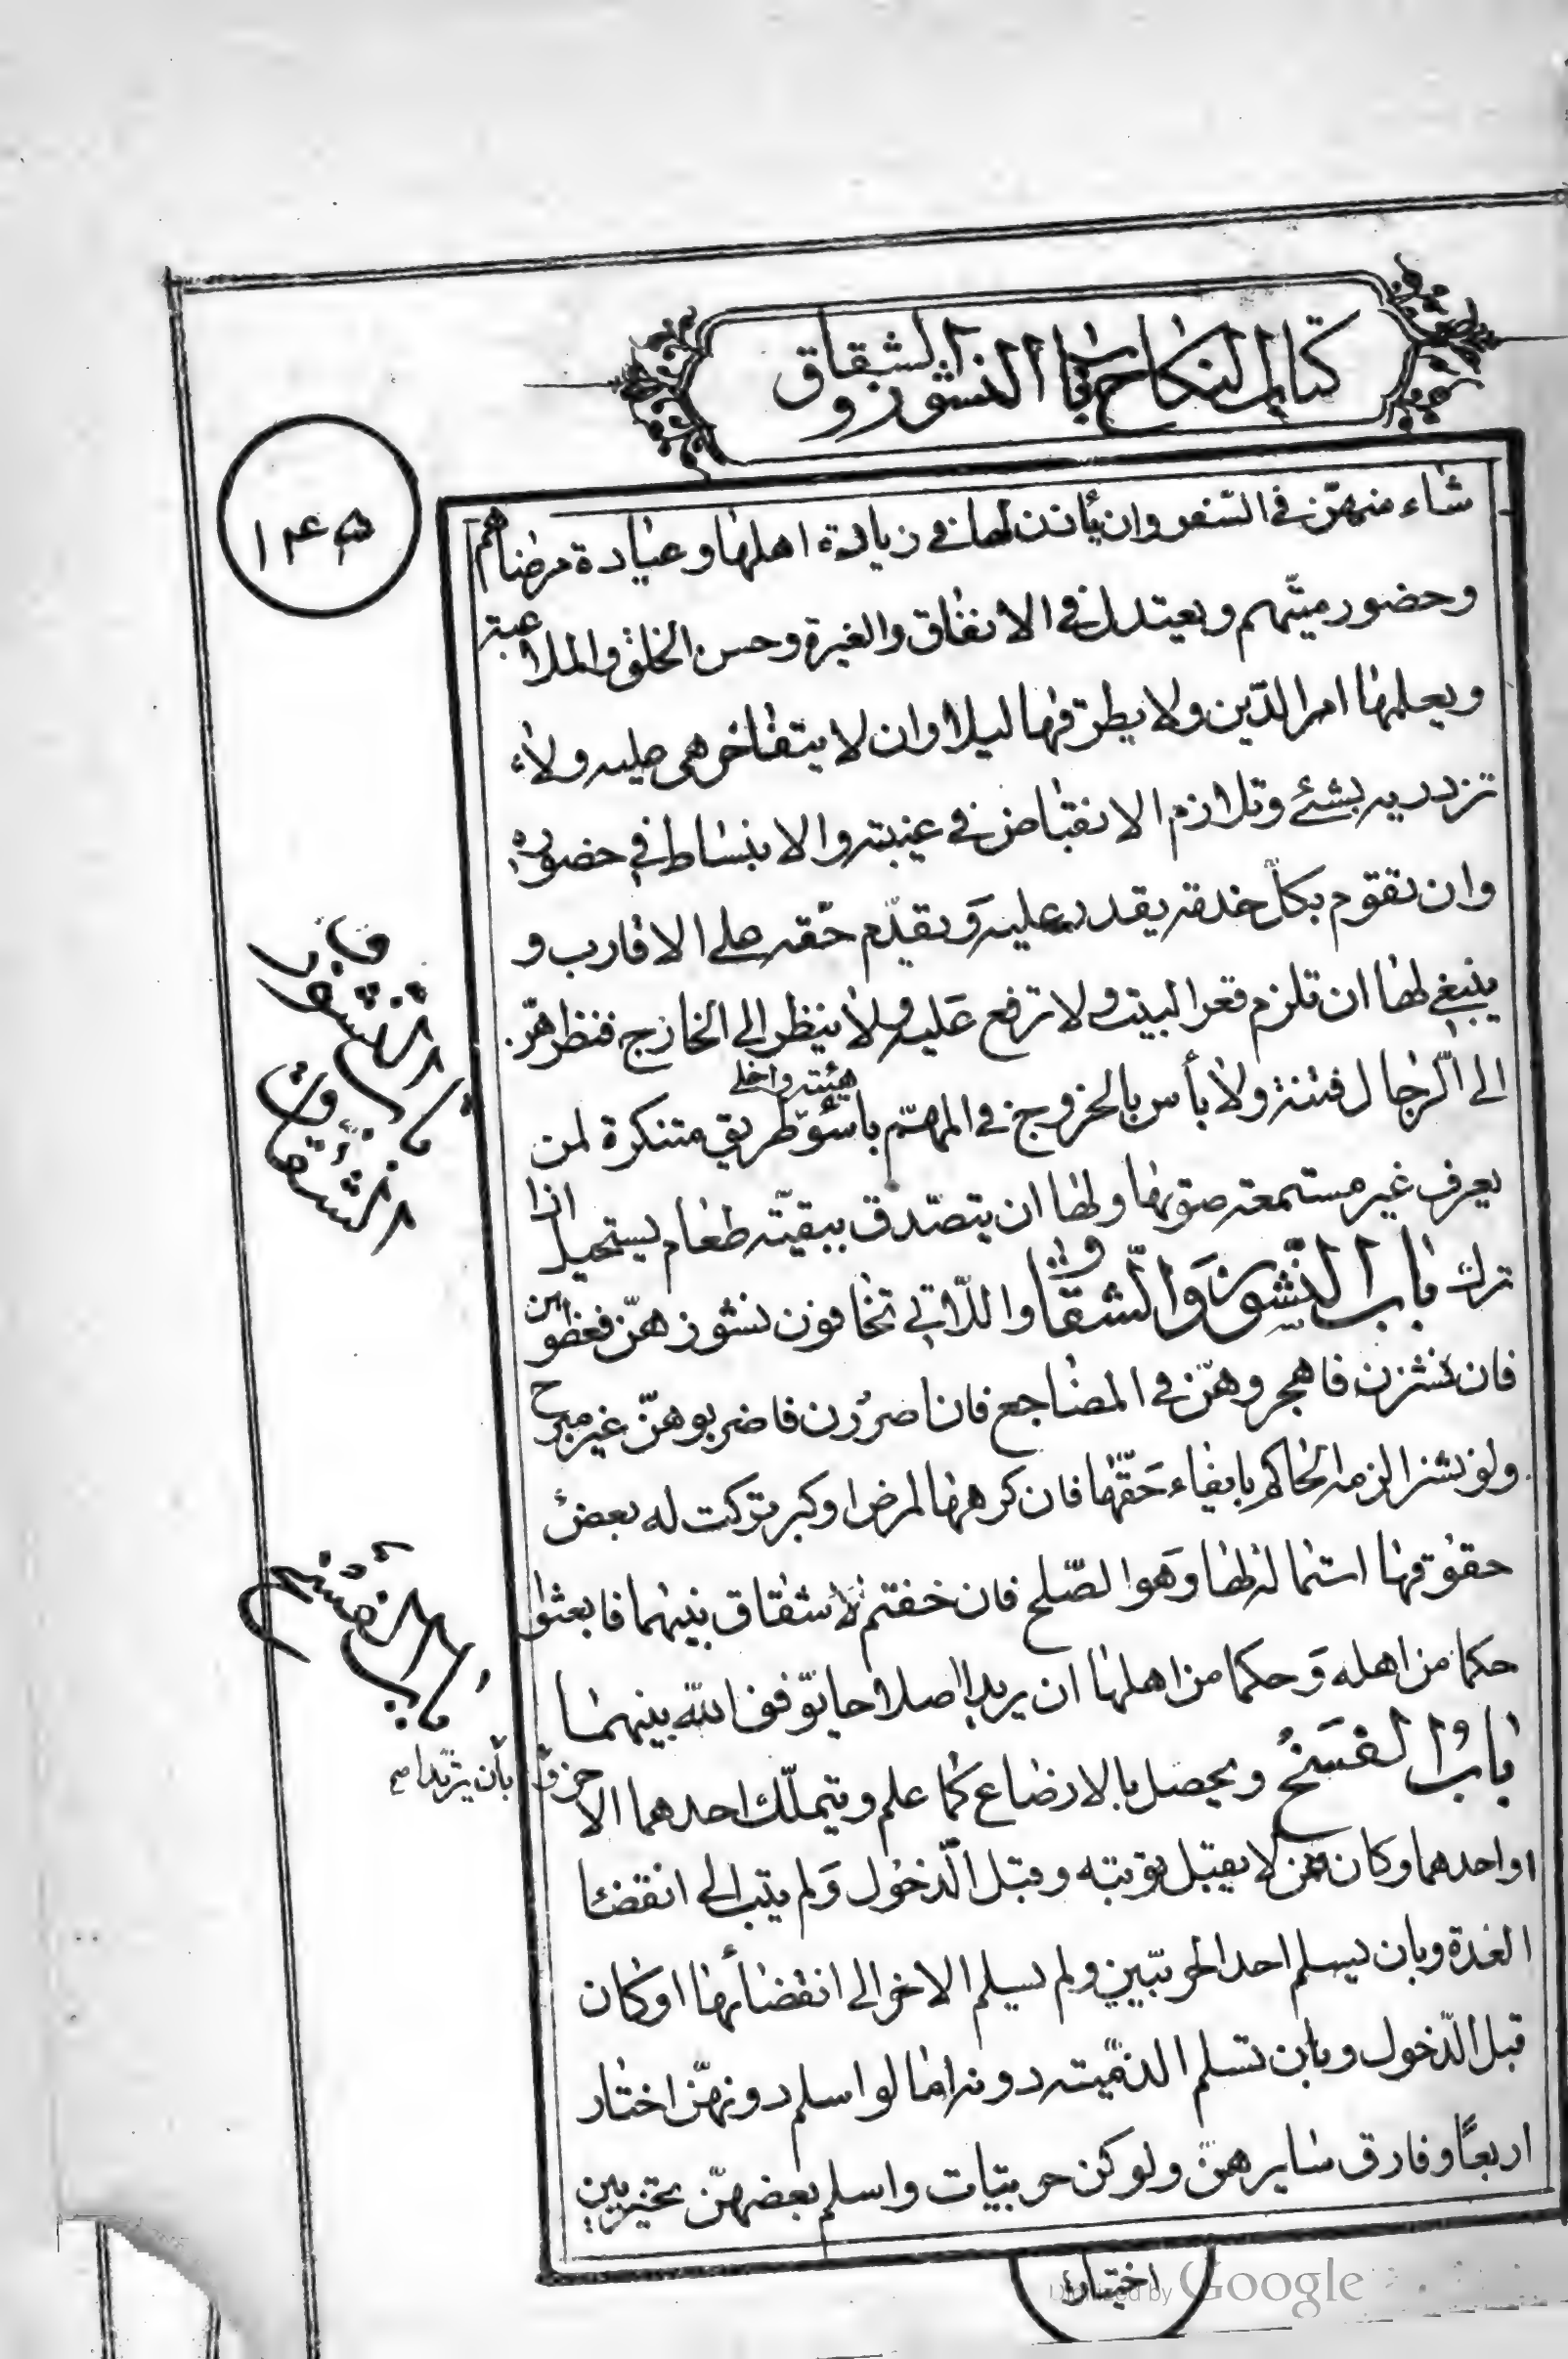 كتاب النكاح باب النشوز والشقاق
١٤٥
شاء منهنّ فى السّفر وان يأذن لها فى زيارة اهلها وعيادة مرضاهم
وحضور ميتّهم ويعتدل فى الانفاق والغيرة وحسن الخلق والملاعبة
ويعلمها امر الدّين ولا يطرقها ليلا وان لا يتفاخر هى عليه ولا
تزدريه بشئ وتلازم الانقباض فى غيبته والانبساط فى حضوره
وان تقوم بكلّ خدمة يقدر عليه وَتقدّم حقّه على الاقارب و
ينبغى لها ان تلزم قعر البيت ولا ترفع عَليه ولا ينظر الى الخارج فنظرهنّ
الى الرّجال فتنة ولا بأس بالخروج فى المهمّ باسوء هيئته واخلى طريق متنكرة لمن
يعرف غير مستمعة صوتها ولها ان يتصّدق ببقيّة طعام يستحيل اذا
ترك باب النّشوز وَالّشقاق واللّاتى تخافون نشوزهنّ فعظوهن
فان نشزن فاهجروهنّ فى المضاجع فان اصررن فاضربوهنّ غير مبرح
ولو نشز الزمه الحاكم بايفاء حَقّها فان كرهها لمرض او كبر تركت له بعض
حقوقها استمالة لها وَهو الصّلح فان خفتم شقاق بينهما فابعثوا
حكما من اهله وَحكما من اهلها ان يريدا اصلاحا يوّفق اللّه بينهما
باب الفسَخ ويحصل بالارضاع كما علم ويتملّك احدهما الاخر و بأن يرتدا مع
او احدهما وكان ممّن لا يقبل توبته وقبل الّدخول وَلم يتب الى انقضاء
العدة وبان يسلم احد الحربيّين ولم يسلم الاخر الى انقضائها او كان
قبل الدّخول وبان تسلم الذمّية دونه امّا لو اسلم دونهنّ اختار
اربعًا وفارق سايرهنّ ولو كن حربيّات واسلم بعضهنّ تخير بين
اختيار
باب النشوز والشقاق
باب الفسخ